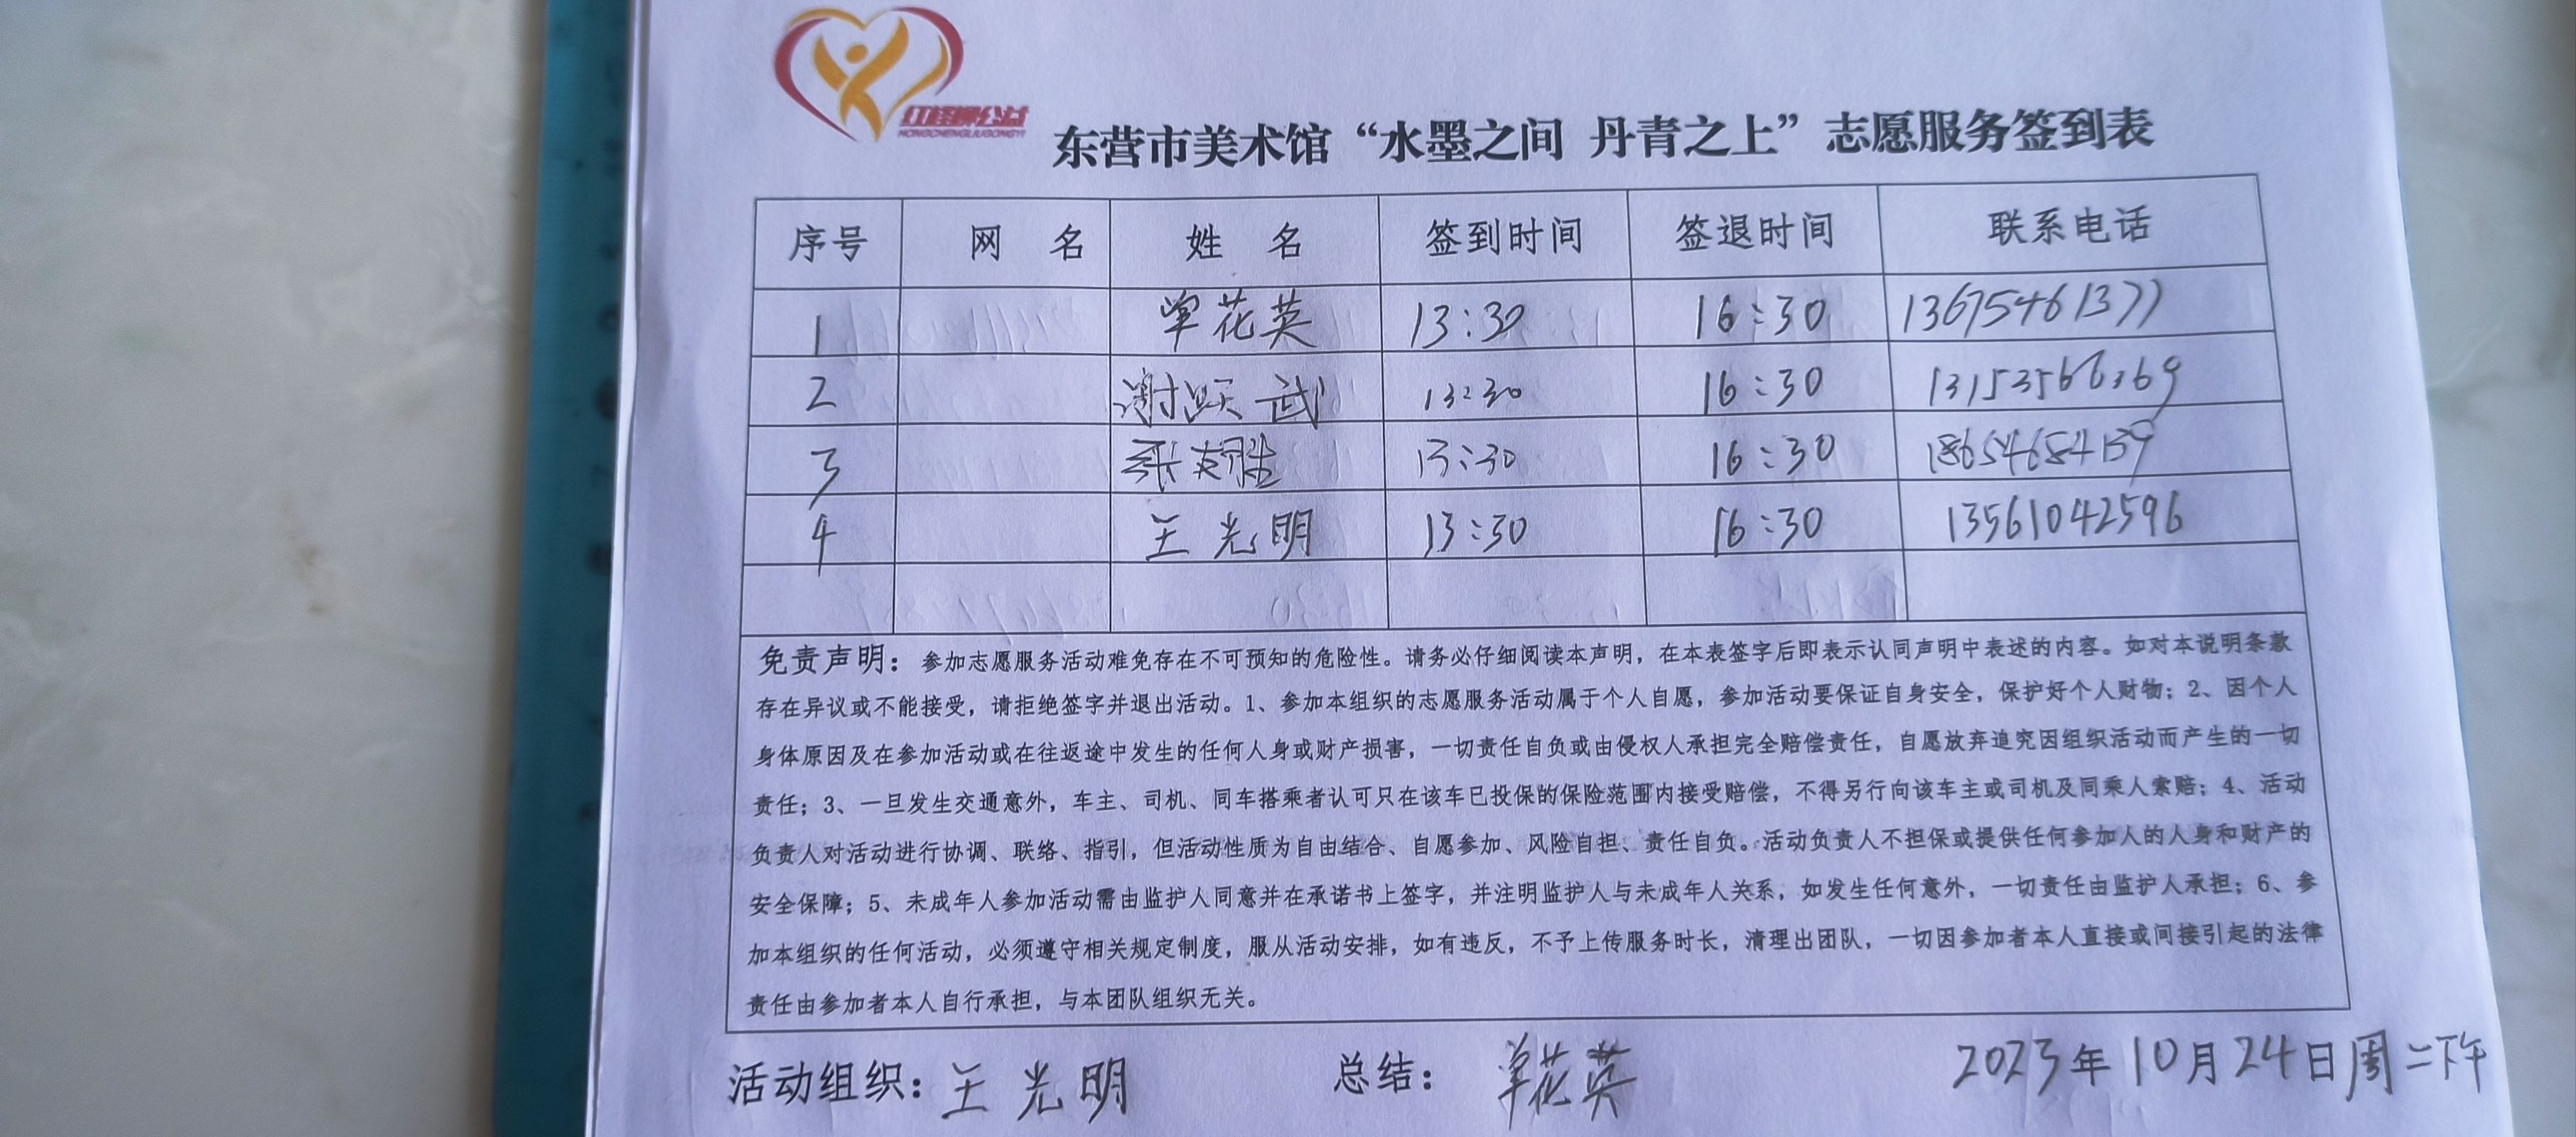 红柽柳公益
HONGCHENGLIUGONGYI
东营市美术馆“水墨之间 丹青之上”志愿服务签到表
序号 网 名 姓 名 签到时间 签退时间 联系电话
1 单花英 13:30 16:30 13675461377
2 谢跃武 13:30 16:30
3 张 13:30 16:30 18654684139
4 王光明 13:30 16:30 13561042596
免责声明：参加志愿服务活动难免存在不可预知的危险性。请务必仔细阅读本声明，在本表签字后即表示认同声明中表述的内容。如对本说明条款
存在异议或不能接受，请拒绝签字并退出活动。1、参加本组织的志愿服务活动属于个人自愿，参加活动要保证自身安全，保护好个人财物；2、因个人
身体原因及在参加活动或在往返途中发生的任何人身或财产损害，一切责任自负或由侵权人承担完全赔偿责任，自愿放弃追究因组织活动而产生的一切
责任；3、一旦发生交通意外，车主、司机、同车搭乘者认可只在该车已投保的保险范围内接受赔偿，不得另行向该车主或司机及同乘人索赔；4、活动
负责人对活动进行协调、联络、指引，但活动性质为自由结合、自愿参加、风险自担、责任自负。活动负责人不担保或提供任何参加人的人身和财产的
安全保障；5、未成年人参加活动需由监护人同意并在承诺书上签字，并注明监护人与未成年人关系，如发生任何意外，一切责任由监护人承担；6、参
加本组织的任何活动，必须遵守相关规定制度，服从活动安排，如有违反，不予上传服务时长，清理出团队，一切因参加者本人直接或间接引起的法律
责任由参加者本人自行承担，与本团队组织无关。
活动组织：王光明 总结：单花英 2023年10月24日周二下午